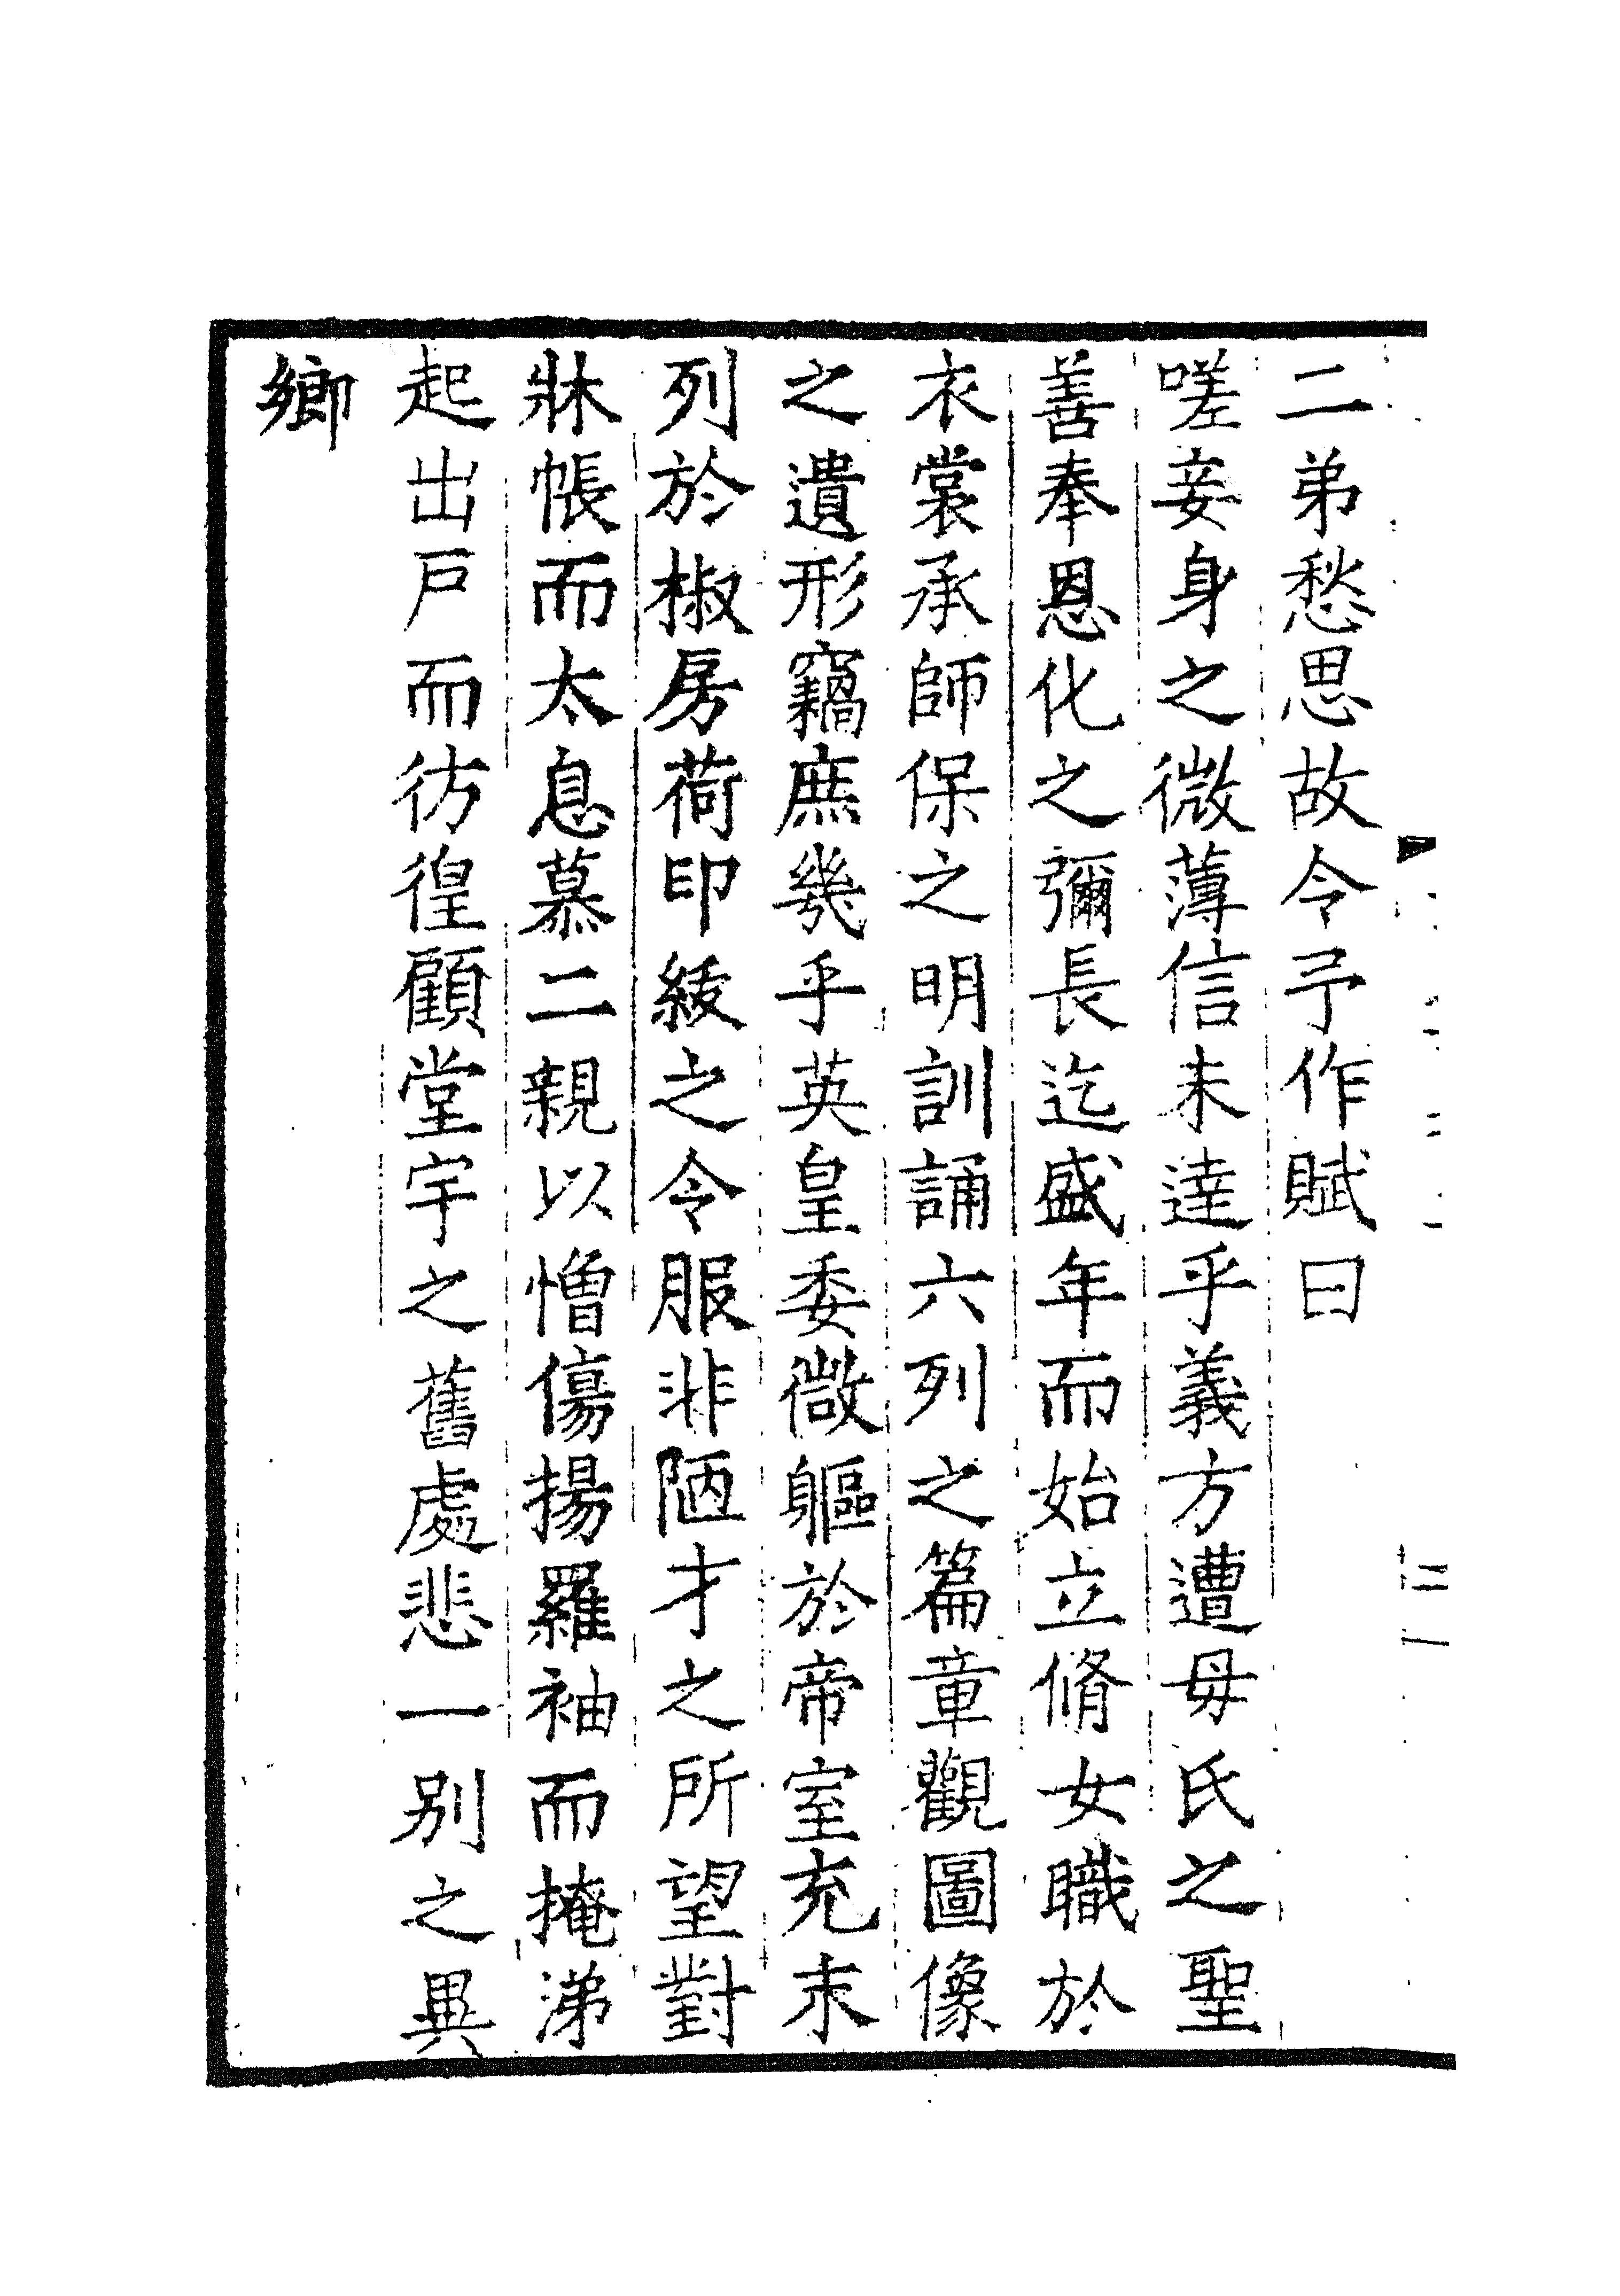 二弟愁思故令予作賦曰
嗟妾身之微薄信未達乎義方遭母氏之聖
善奉恩化之彌長迄盛年而始立脩女職於
衣裳承師保之明訓誦六列之篇章觀圖像
之遺形竊庶幾乎英皇委微軀於帝室充末
列於椒房荷印綬之令服非陋才之所望對
牀帳而太息慕二親以憎傷揚羅袖而掩涕
起出戸而彷徨顧堂宇之舊處悲一别之異
鄉